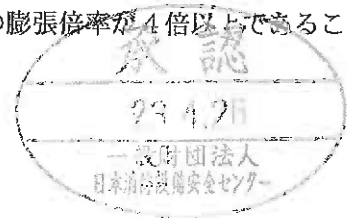 の膨張倍率が4倍以上であるこ
承認
一般財団法人
日本消防設備安全センター